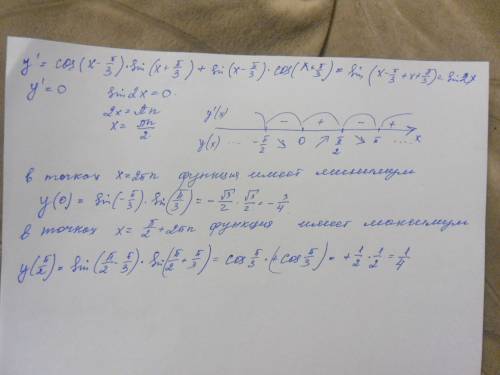 y' = cos(x - π/3) · sin(x + π/3) + sin(x - π/3) · cos(x + π/3) = sin(x - π/3 + x + π/3) = sin 2x
y' = 0 sin 2x = 0.
2x = πn
x = πn/2
y'(x) - + - +
y(x) ... -π/2 ↘ 0 ↗ π/2 ↘ π .... x
в точках x = 2πn функция имеет минимум
y(0) = sin(-π/3) · sin(π/3) = -√3/2 · √3/2 = -3/4
в точках x = π/2 + 2πn функция имеет максимум
y(π/2) = sin(π/2 - π/3) · sin(π/2 + π/3) = cos π/3 · (+cos π/3) = +1/2 · 1/2 = 1/4